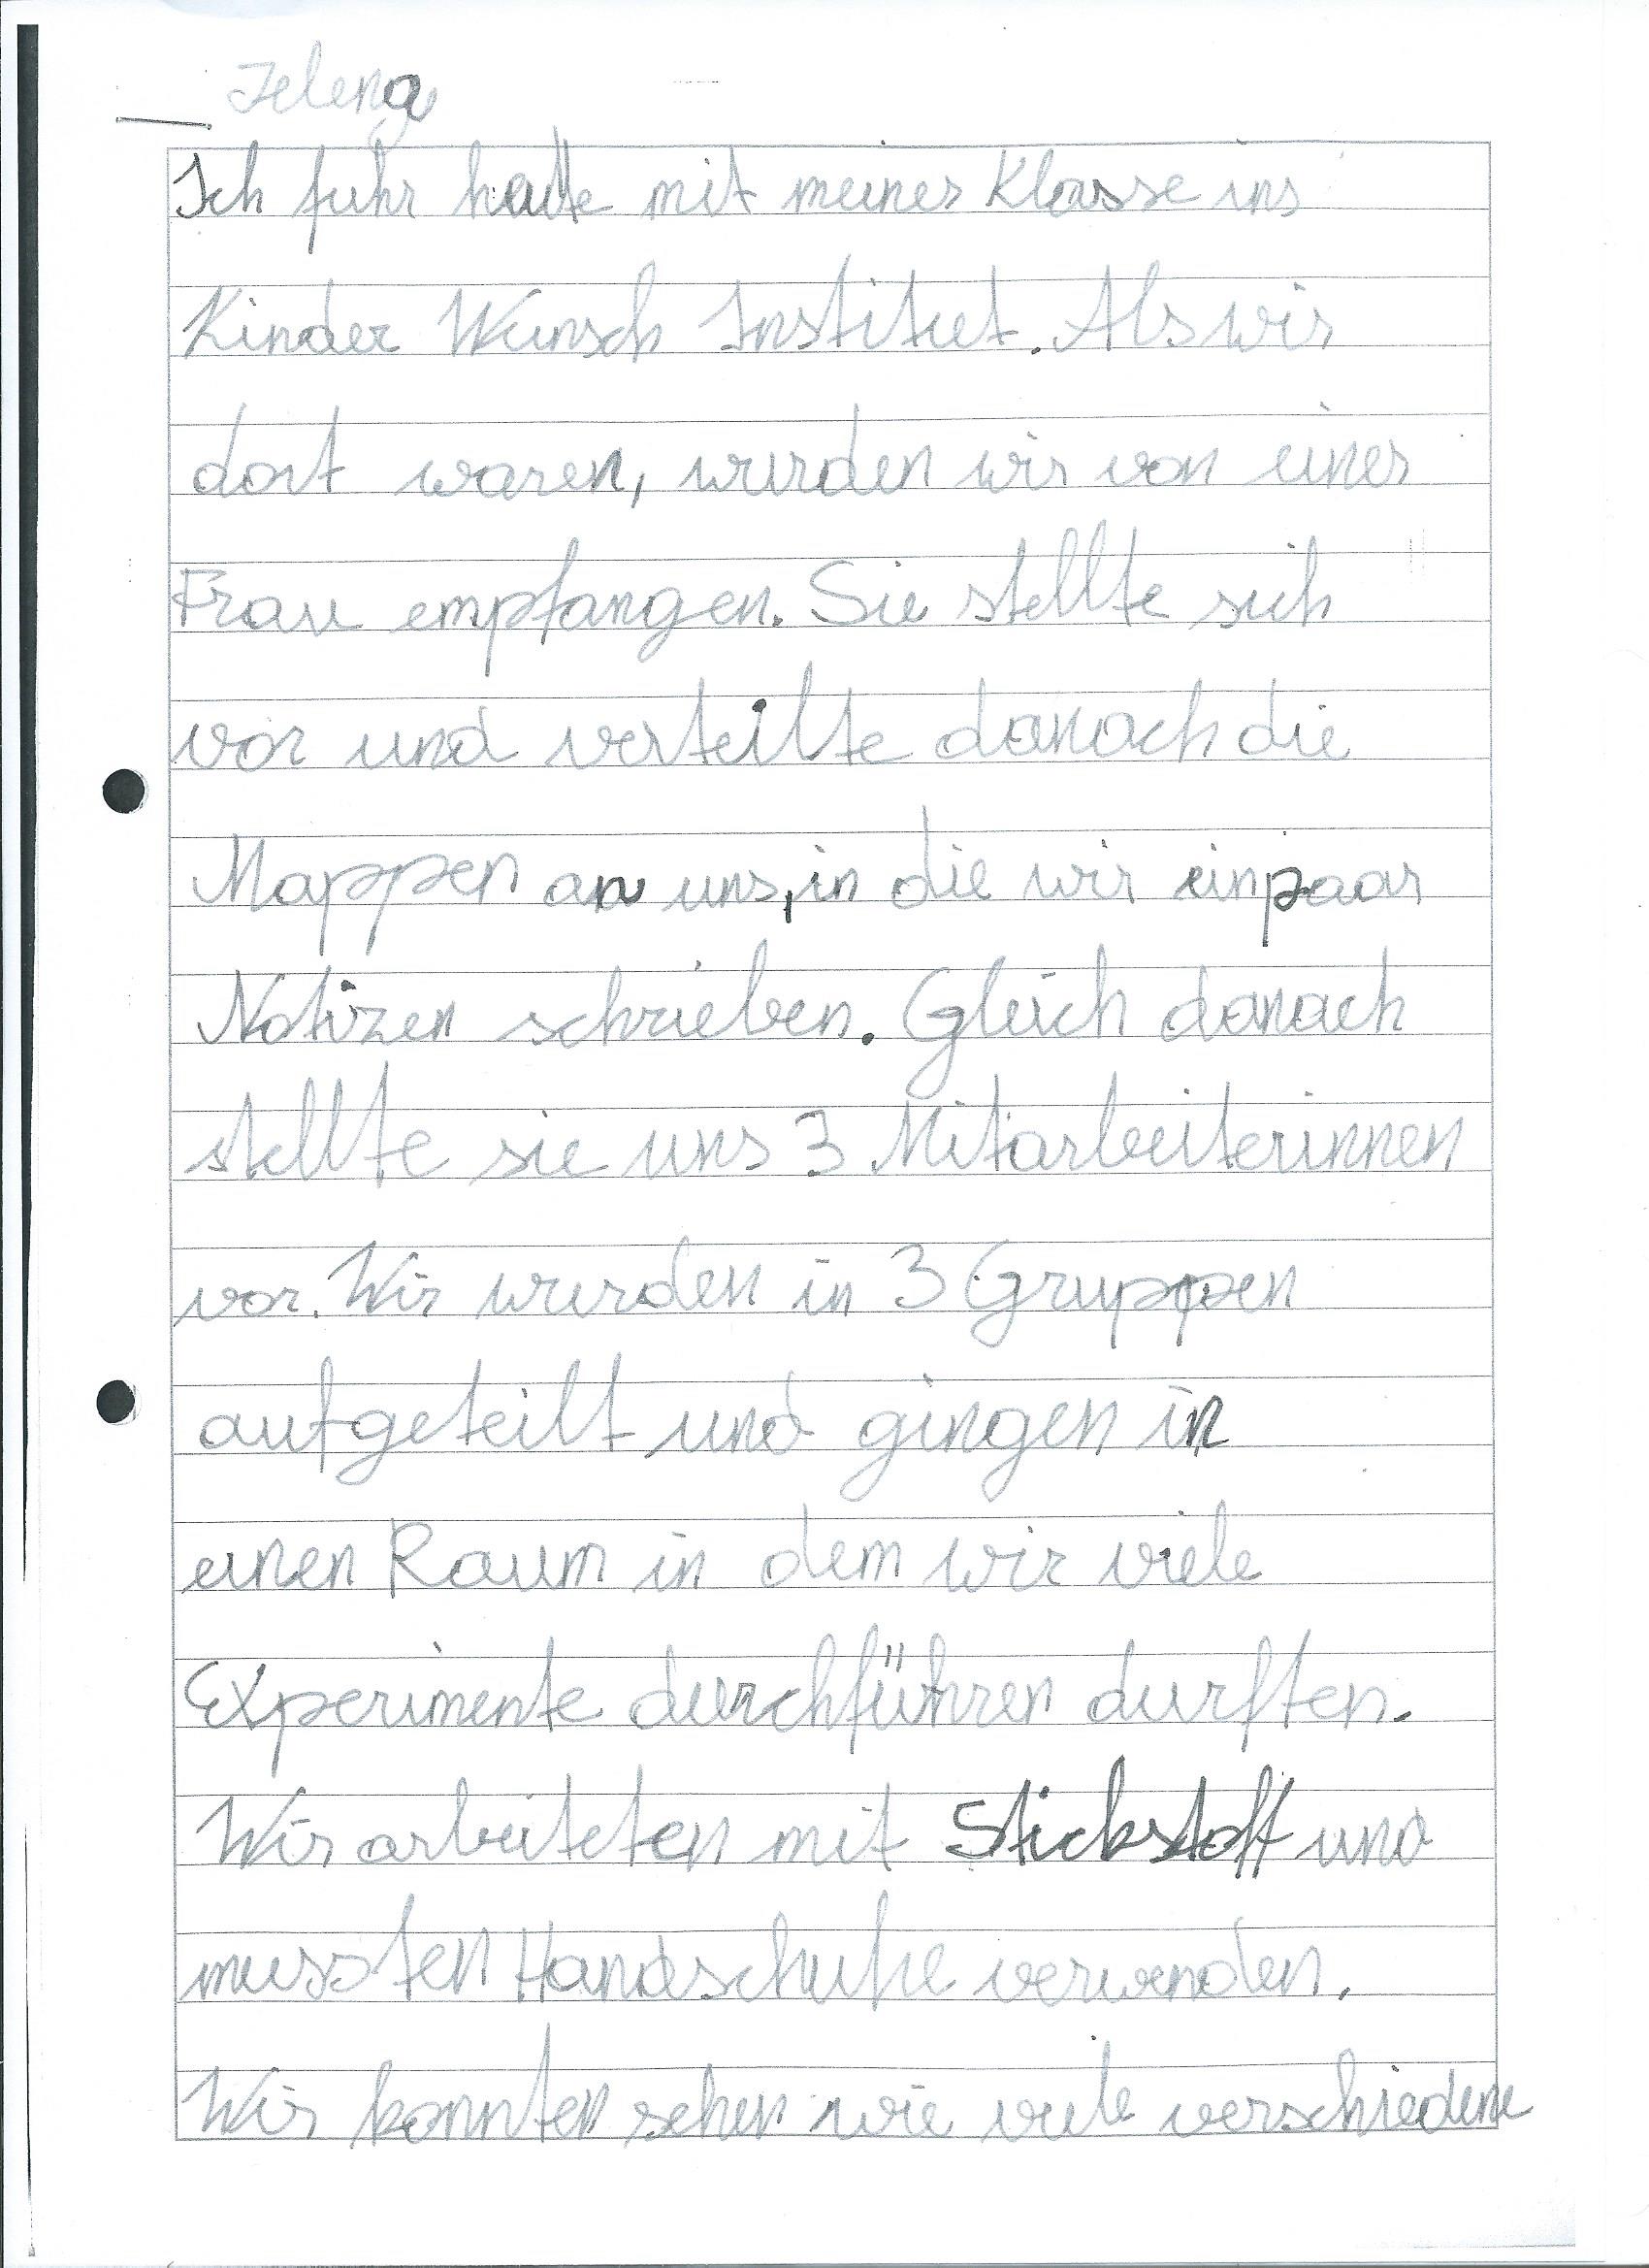 Jelena
Ich fuhr heute mit meiner Klasse ins
Kinder Wunsch Institut. Als wir
dort waren, wurden wir von einer
Frau empfangen. Sie stellte sich
vor und verteilte danach die
Mappen an uns, in die wir ein paar
Notizen schrieben. Gleich danach
stellte sie uns 3 Mitarbeiterinnen
vor. Wir wurden in 3 Gruppen
aufgeteilt und gingen in
einen Raum in dem wir viele
Experimente durchführen durften.
Wir arbeiteten mit Stickstoff und
mussten Handschuhe verwenden.
Wir konnten sehen wie viele verschiedene